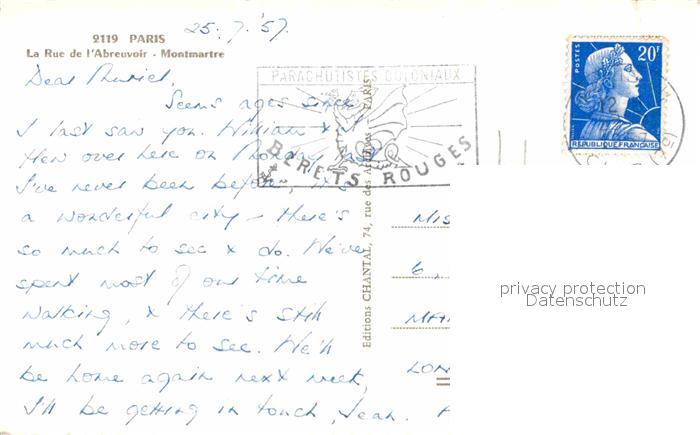 2119 PARIS
La Rue de l'Abreuvoir - Montmartre
25.7.'57.
Dear Muriel,
Seems ages since
I last saw you. William & I
flew over here on Monday
I've never been before, it's
a wonderful city - there's
so much to see & do. We've
spent most of our time
walking, & there's still
much more to see. We'll
be home again next week,
I'll be getting in touch, Jean.
PARACHUTISTES COLONIAUX
BERETS ROUGES
Editions CHANTAL, 74, rue des Archives - PARIS
POSTES
20F
REPUBLIQUE FRANÇAISE
MIS
6,
MA
LON
privacy protection
Datenschutz